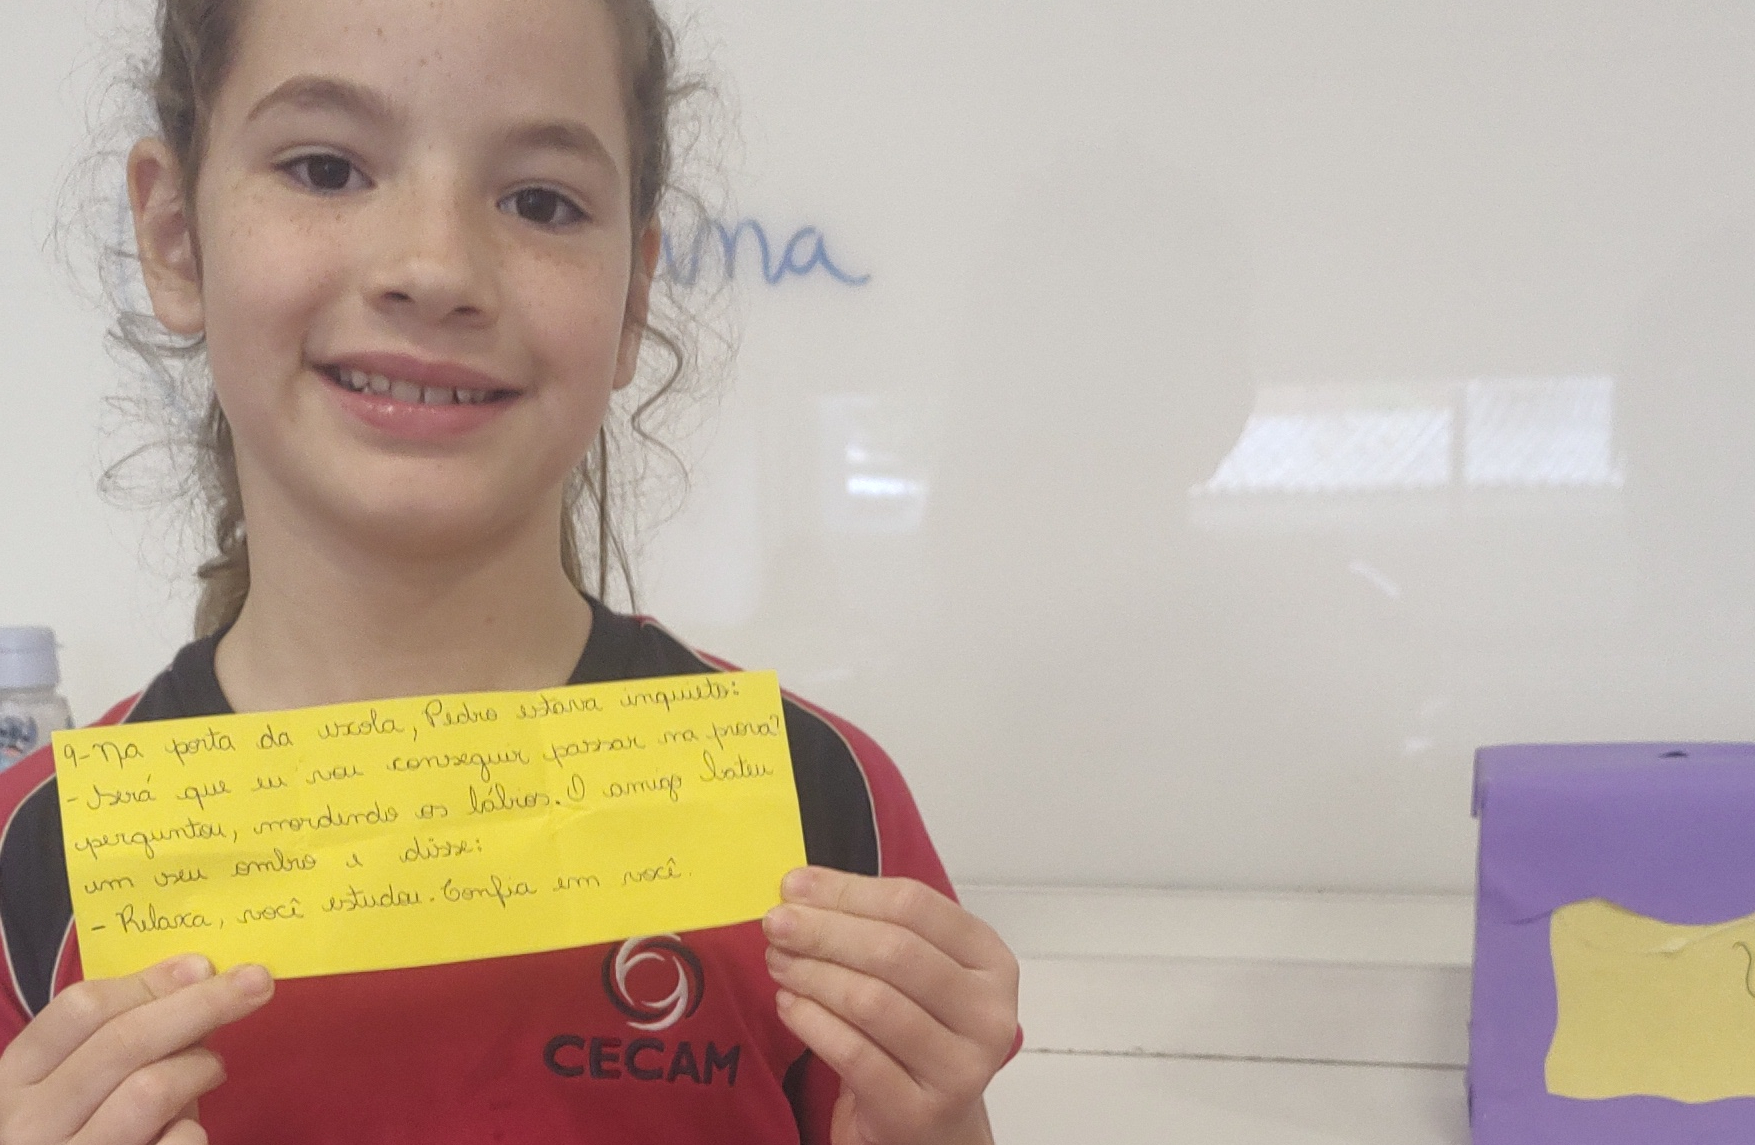 ma
9- Na porta da escola, Pedro estava inquieto:
- Será que eu vou conseguir passar na prova?
perguntou, mordendo os lábios. O amigo bateu
um seu ombro e disse:
- Relaxa, você estudou. Confia em você.
CECAM